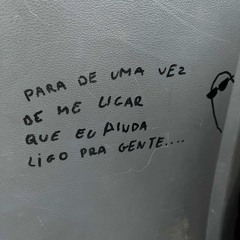 PARA DE UMA VEZ
DE ME LIGAR
QUE EU AINDA
LIGO PRA GENTE....